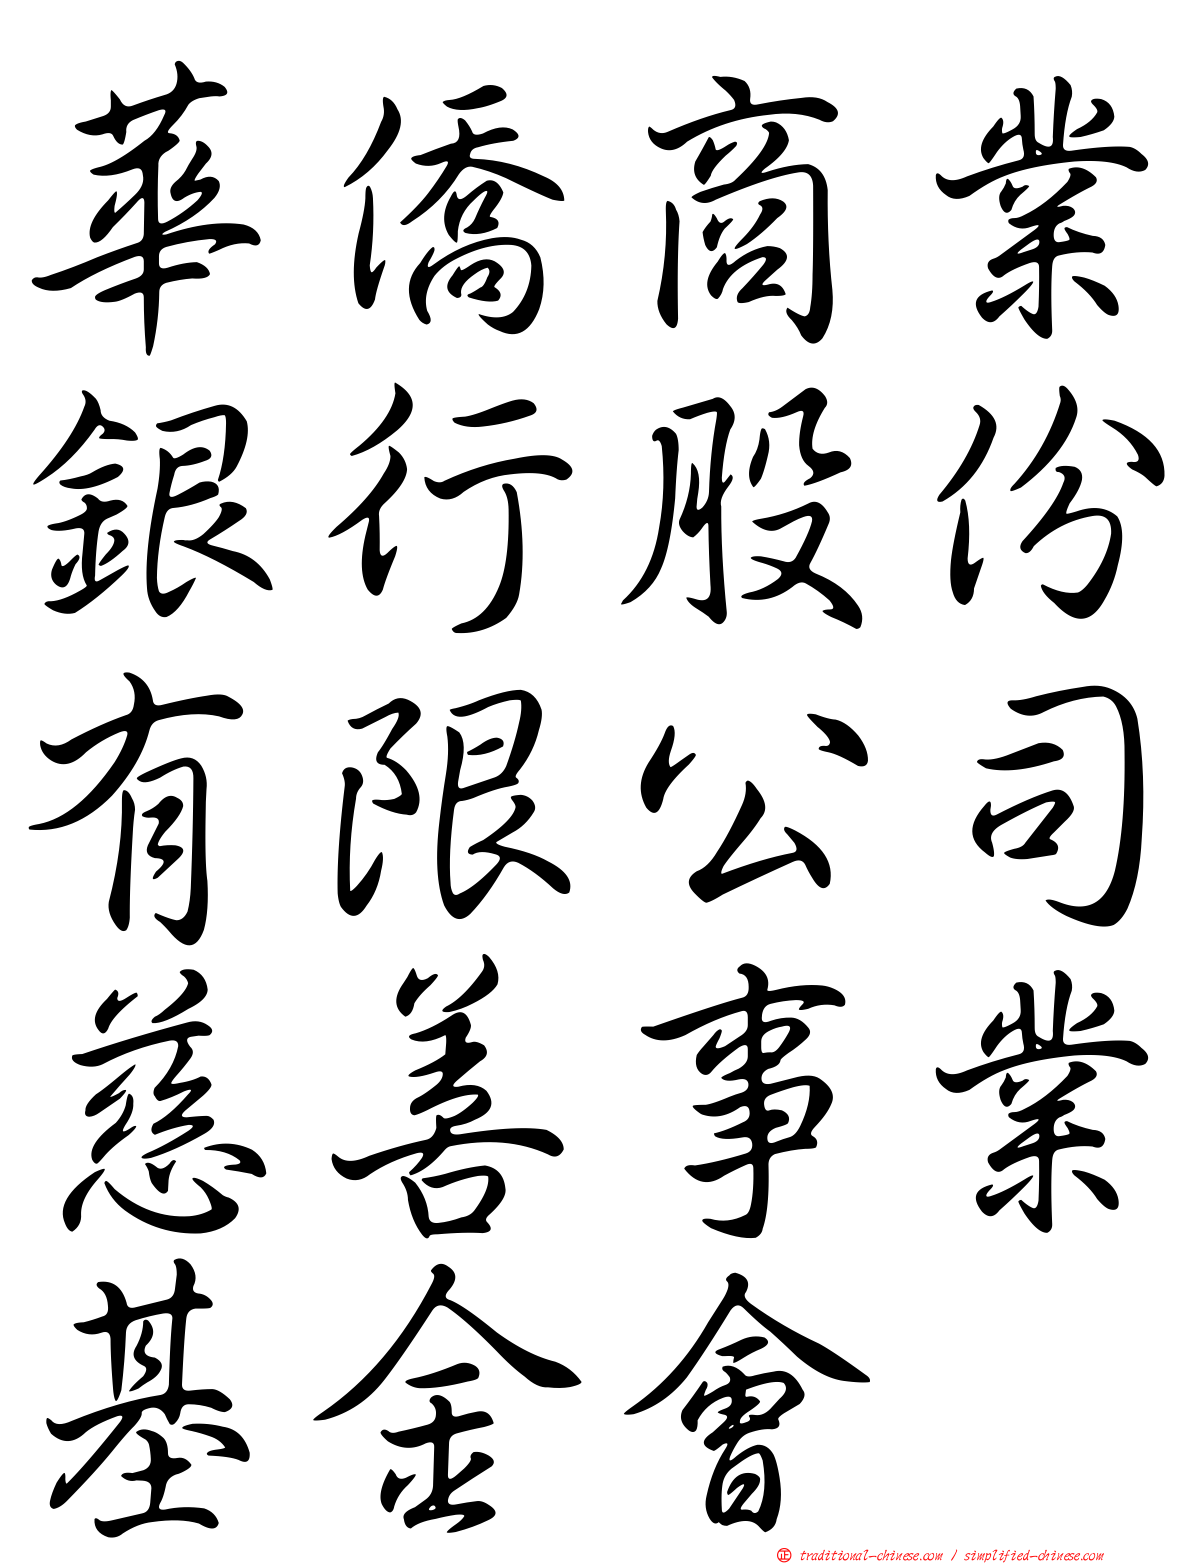 華僑商業
銀行股份
有限公司
慈善事業
基金會
㊣ traditional-chinese.com / simplified-chinese.com